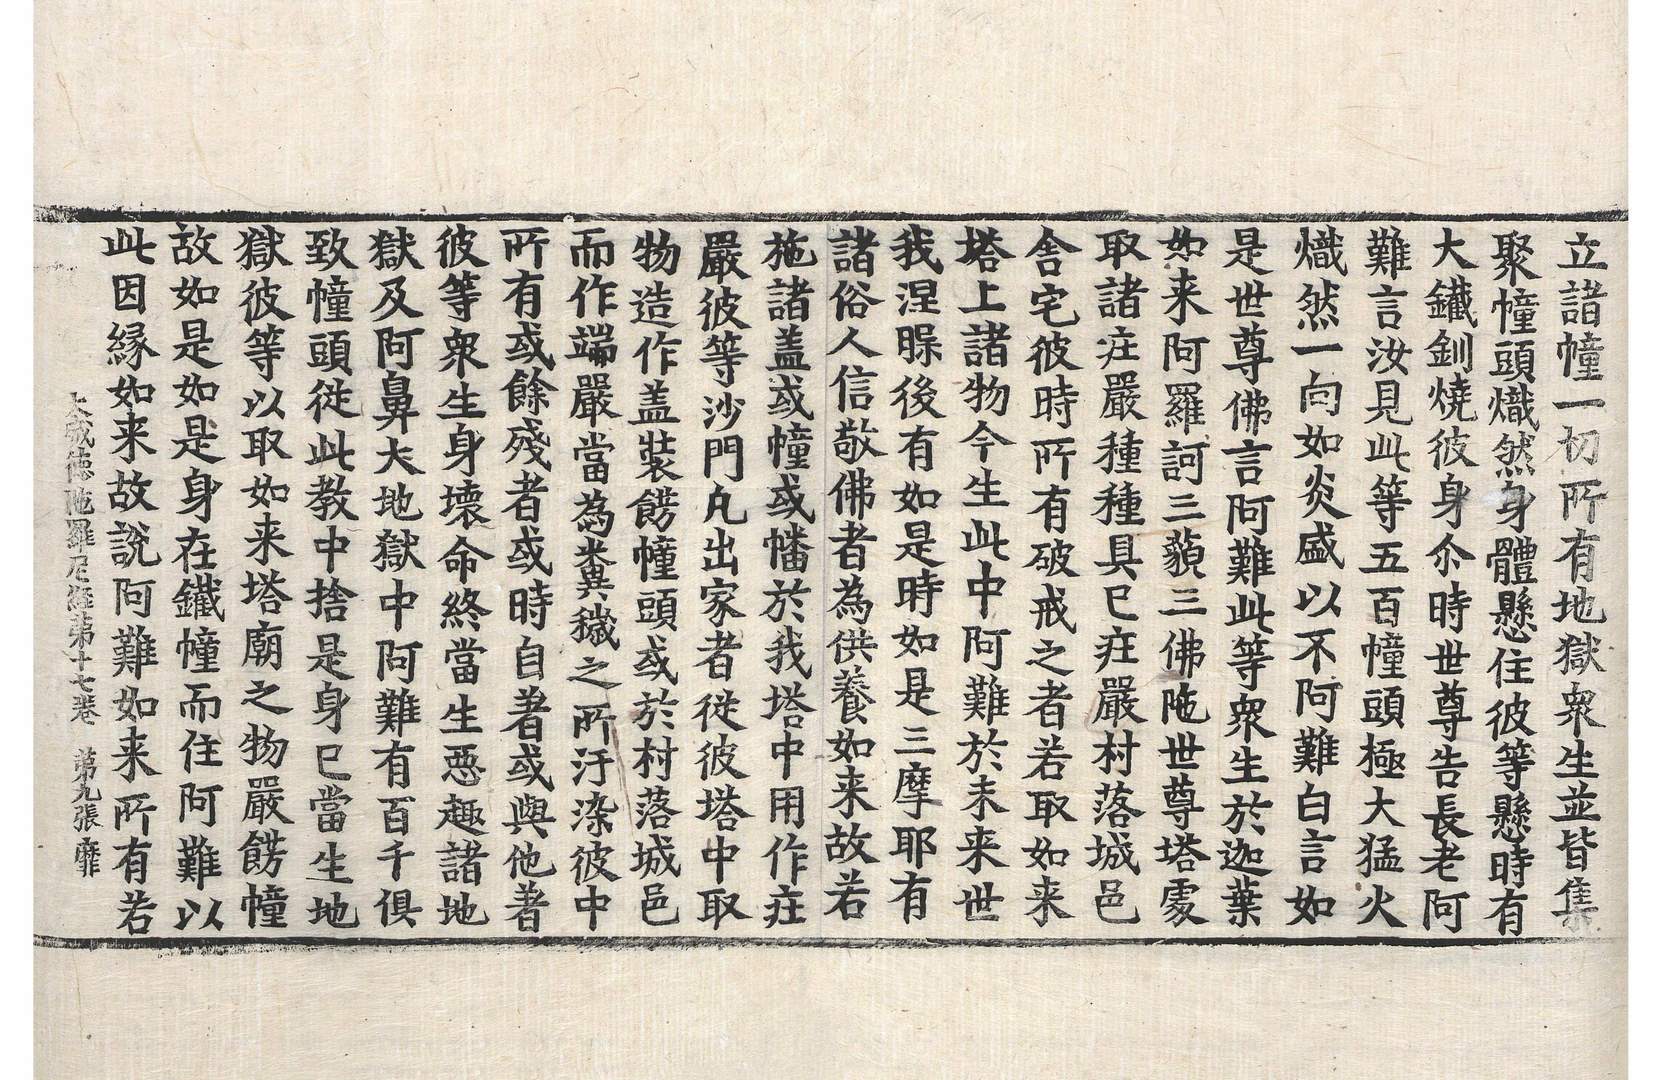 立諸幢一切所有地獄衆生並皆集
聚幢頭熾然身體懸住彼等懸時有
大鐵釧燒彼身尒時世尊告長老阿
難言汝見此等五百幢頭極大猛火
熾然一向如炎盛以不阿難白言如
是世尊佛言阿難此等衆生於迦葉
如来阿羅訶三藐三佛陁世尊塔處
取諸㽵嚴種種具已㽵嚴村落城邑
舎宅彼時所有破戒之者若取如来
塔上諸物今生此中阿難於未来世
我涅槃後有如是時如是三摩耶有
諸俗人信敬佛者為供養如来故若
施諸盖或幢或幡於我塔中用作㽵
嚴彼等沙門凡出家者從彼塔中取
物造作盖裝餝幢頭或於村落城邑
而作端嚴當為糞穢之所汙染彼中
所有或餘殘者或時自著或與他著
彼等衆生身壞命終當生惡趣諸地
獄及阿鼻大地獄中阿難有百千俱
致幢頭從此教中捨是身已當生地
獄彼等以取如来塔廟之物嚴餝幢
故如是如是身在鐵幢而住阿難以
此因緣如来故說阿難如来所有若
大威德陁羅尼經第十七卷　第九張　靡